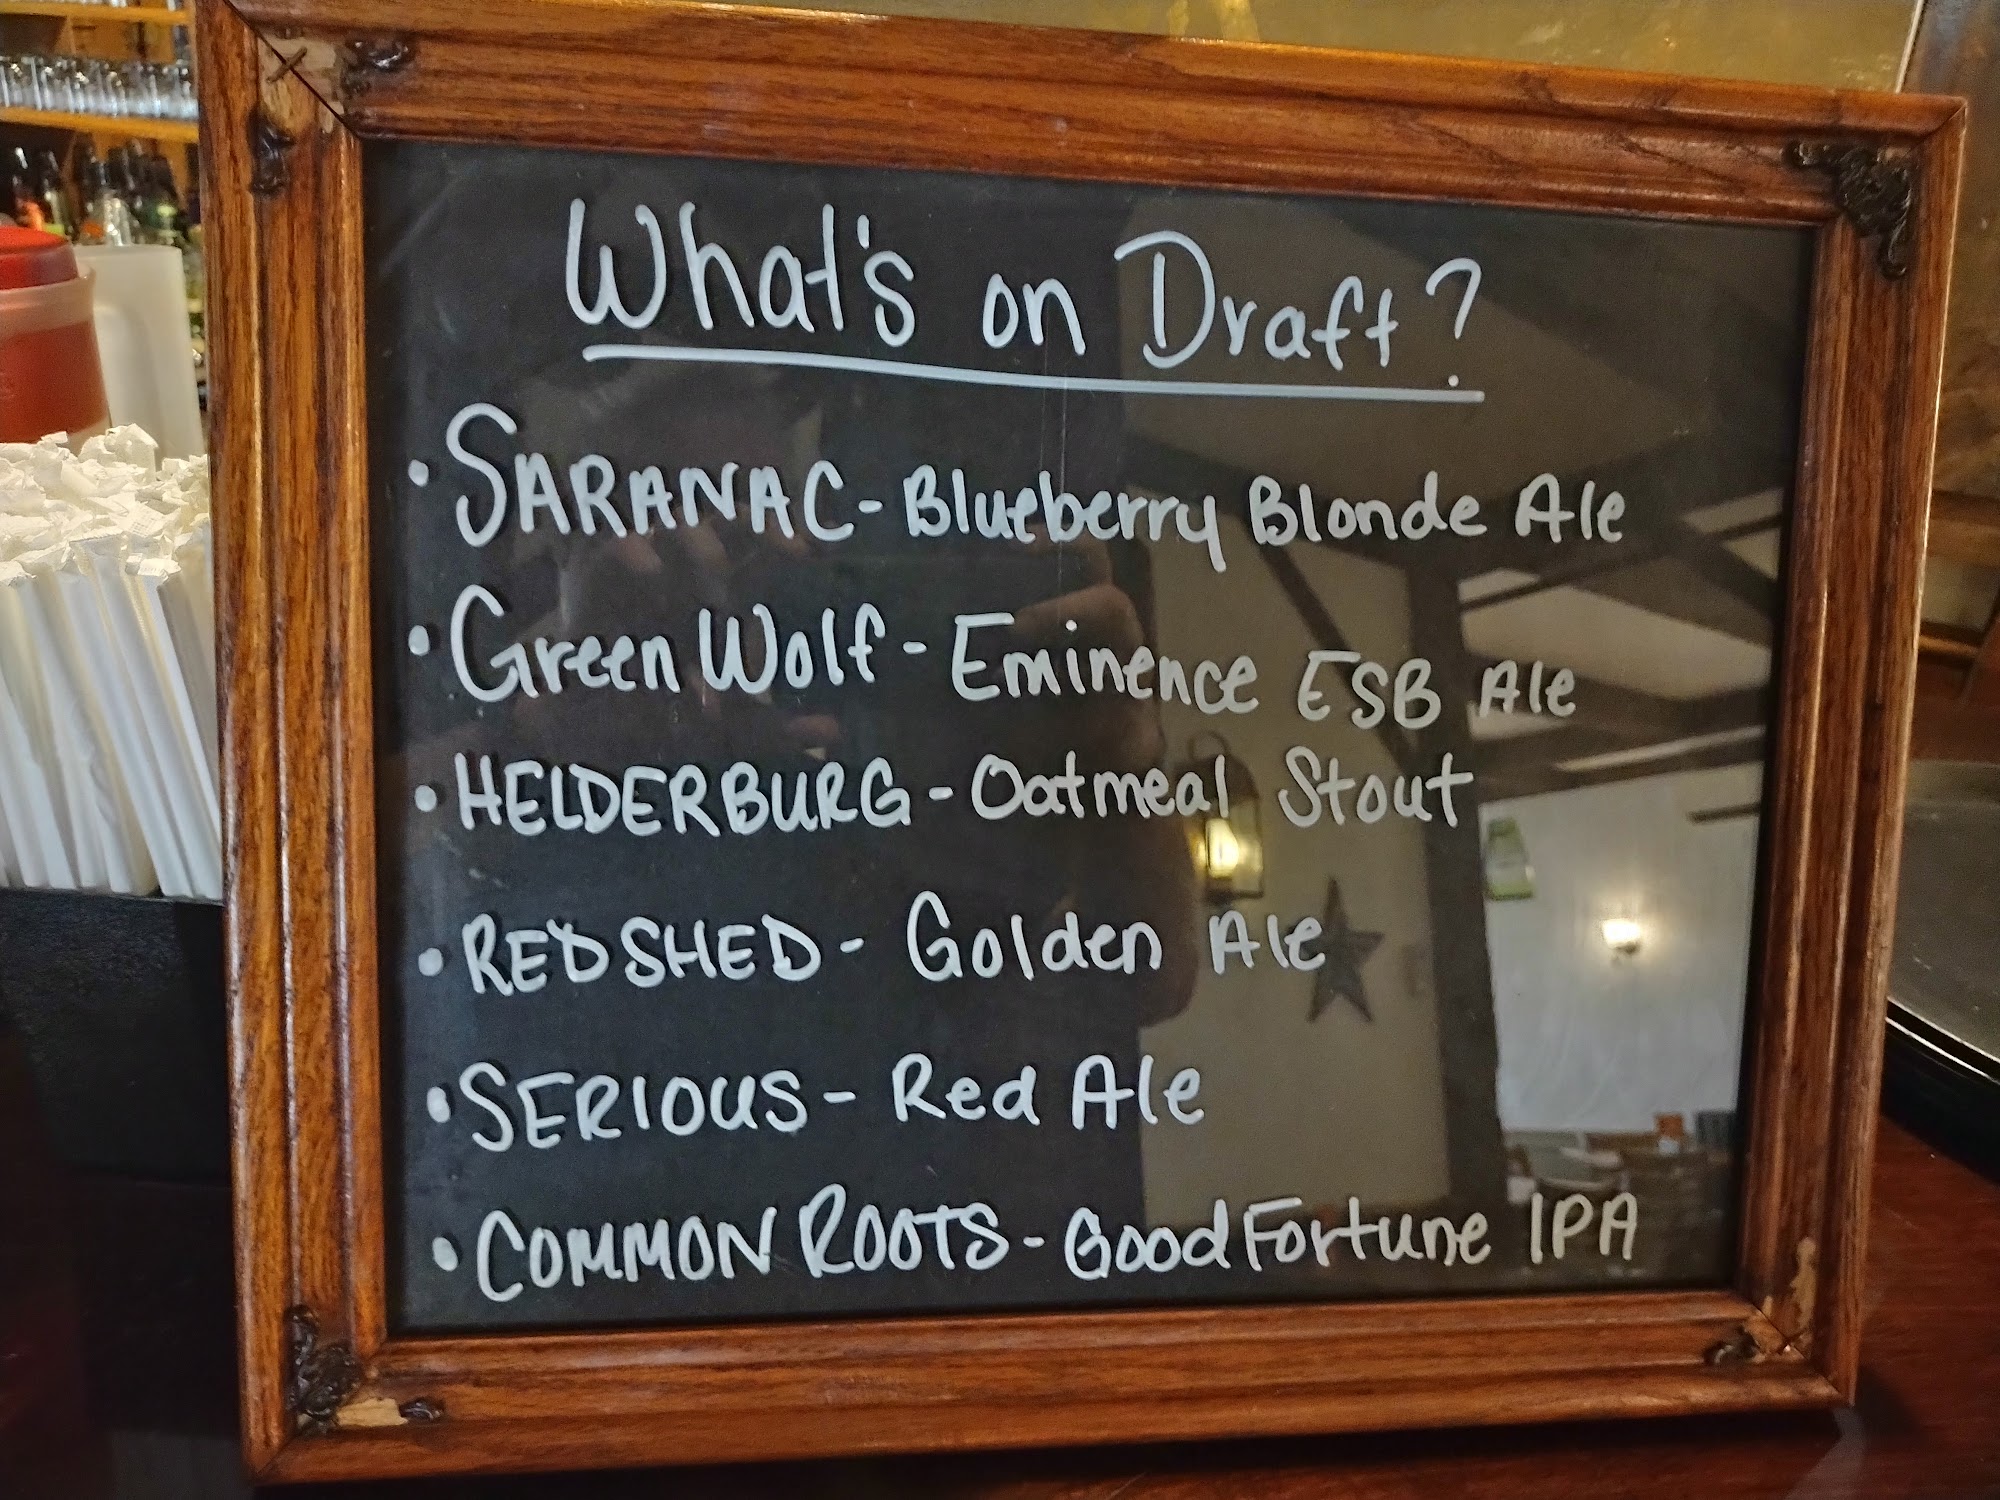 What's on Draft?
• SARANAC - Blueberry Blonde Ale
• Green Wolf - Eminence ESB Ale
• HELDERBURG - Oatmeal Stout
• RED SHED - Golden Ale
• SERIOUS - Red Ale
• COMMON ROOTS - Good Fortune IPA